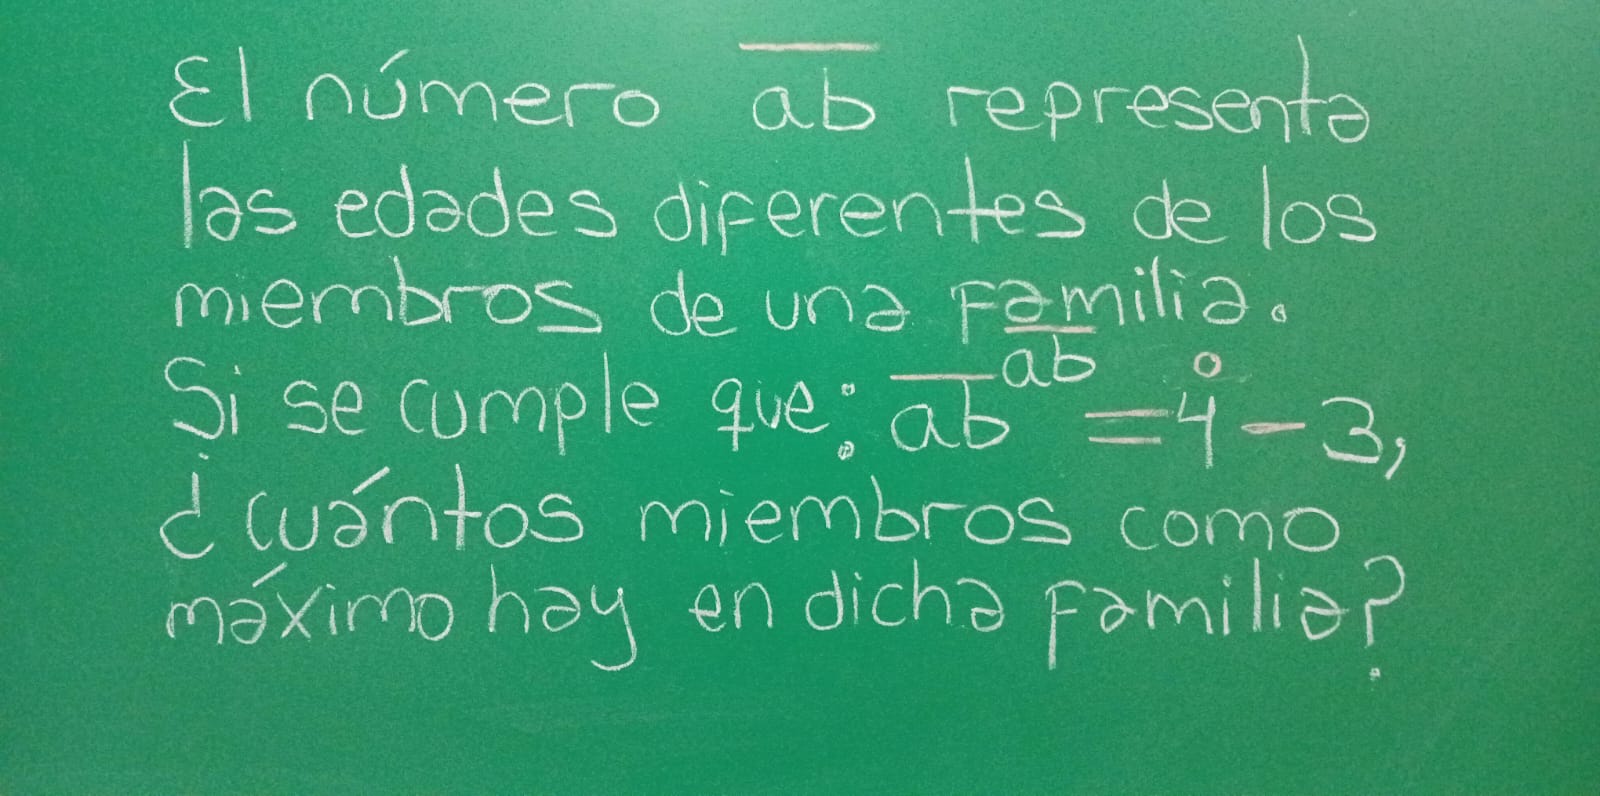 El número a̅b̅ representa
las edades diferentes de los
miembros de una familia.
Si se cumple que: a̅b̅^a̅b̅ = 4̊ - 3,
¿cuántos miembros como
máximo hay en dicha familia?